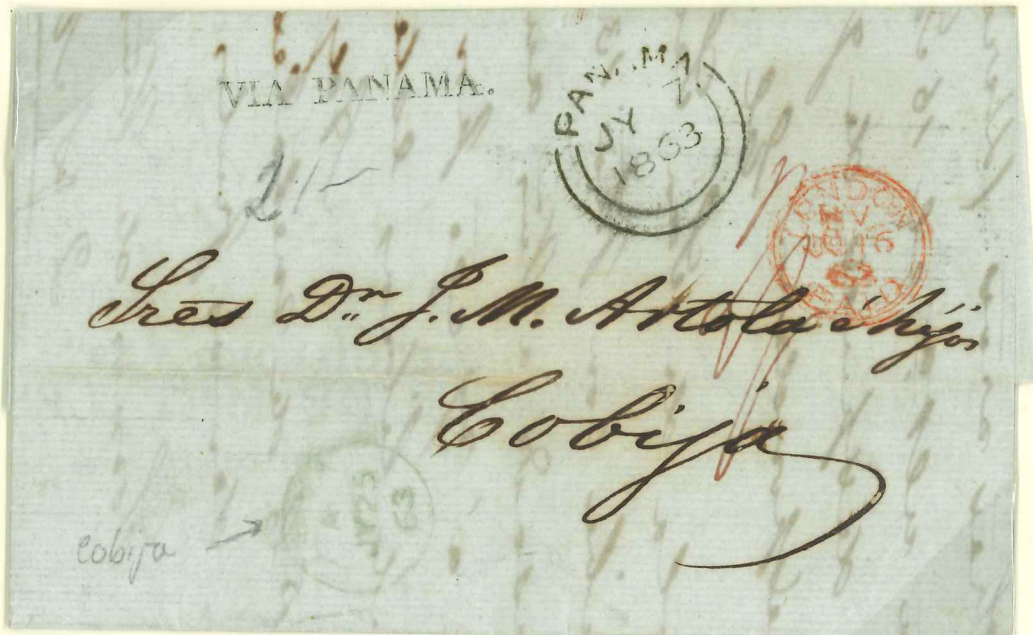 VIA PANAMA.
PANAMA
JY 7
1863
2/-
LONDON
PAID
Sres Dn J. M. Artola é hijos
Cobija
JY 25
63
cobija